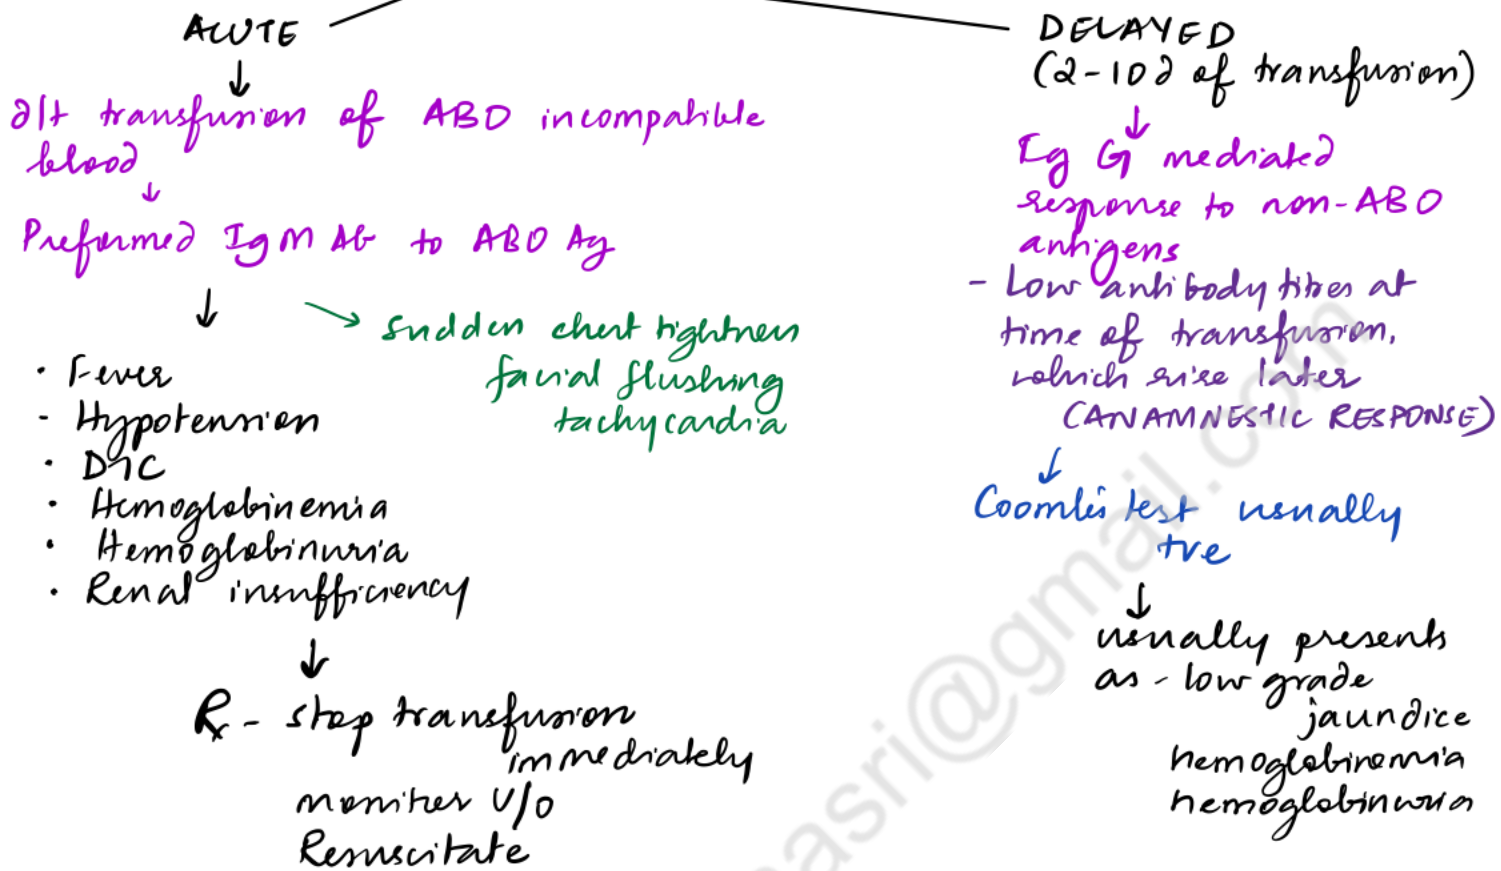 ACUTE
↓
d/t transfusion of ABO incompatible
blood
↓
Preformed IgM Ab to ABO Ag
↓
→ sudden chest tightness
facial flushing
tachycardia
· Fever
- Hypotension
· DIC
· Hemoglobinemia
· Hemoglobinuria
· Renal insufficiency
↓
Rx - stop transfusion
immediately
monitor U/O
Resuscitate
DELAYED
(2-10d of transfusion)
↓
Ig G mediated
response to non-ABO
antigens
- Low antibody titres at
time of transfusion,
which rise later
(ANAMNESTIC RESPONSE)
↓
Coombs test usually
+ve
↓
usually presents
as - low grade
jaundice
hemoglobinemia
hemoglobinuria
asri@gmail.com